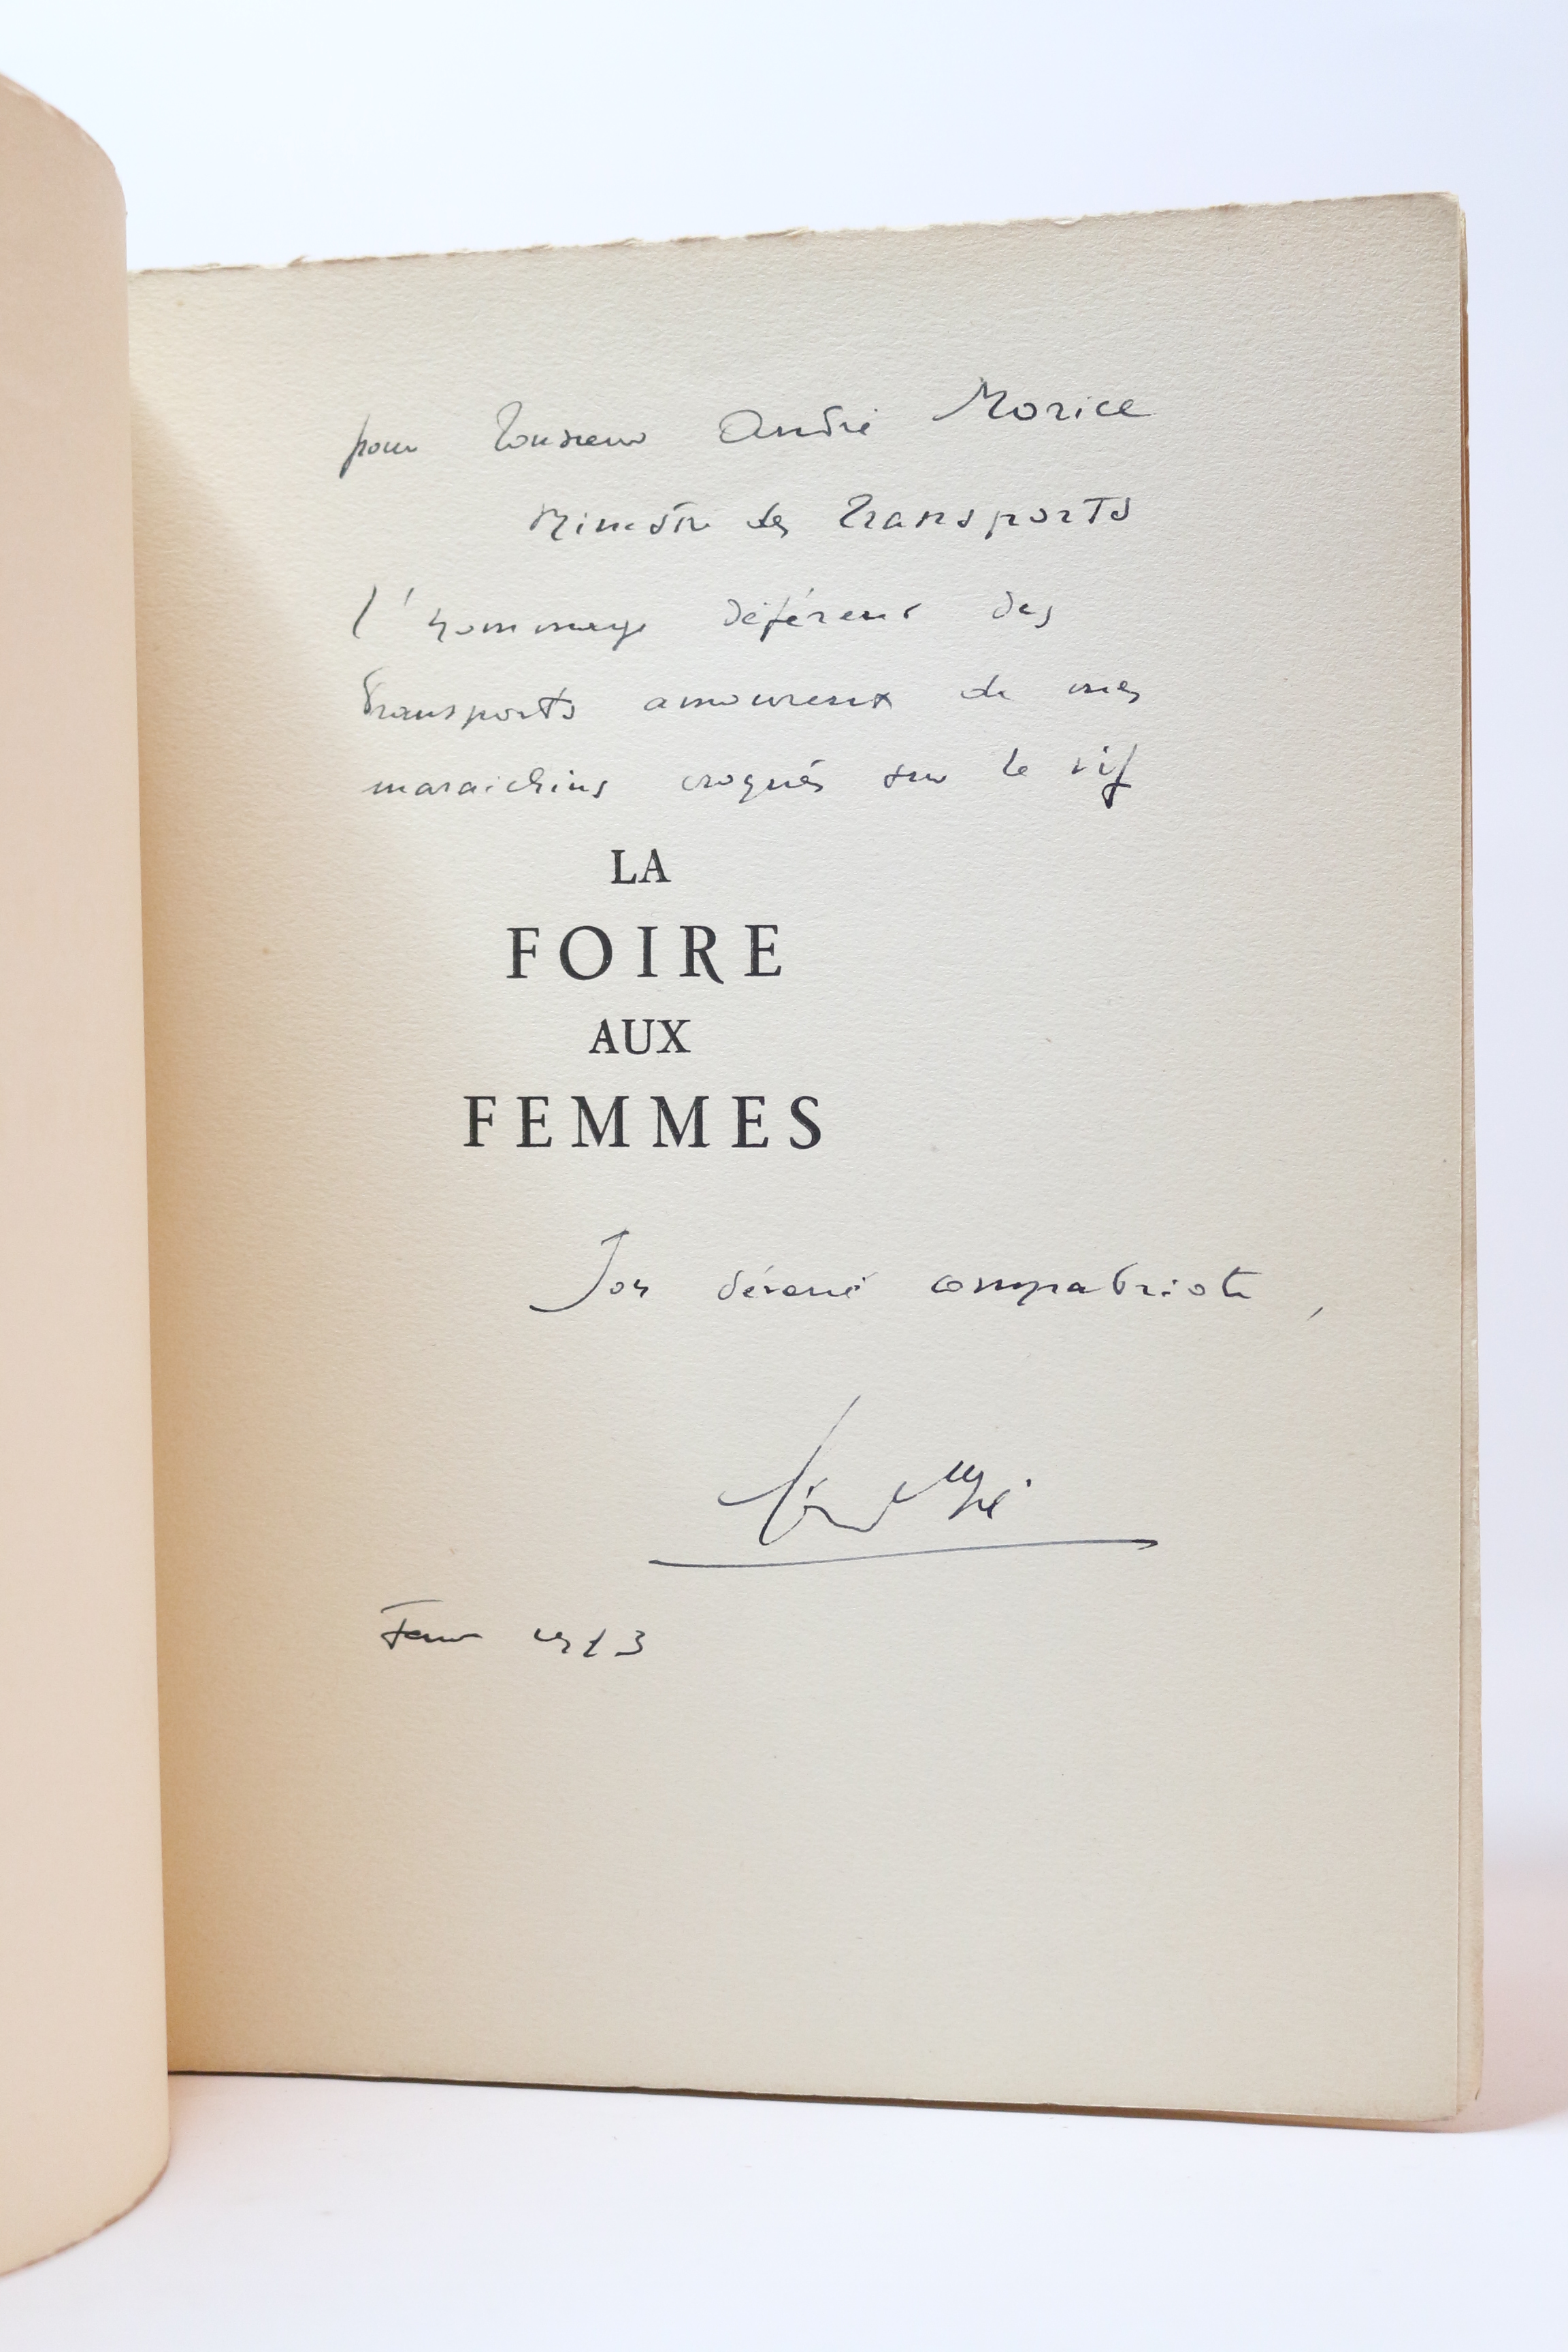 pour Monsieur André Morice
Ministre des Transports
l'hommage déférent des
Transports amoureux de mes
maraichins croqués sur le vif
LA
FOIRE
AUX
FEMMES
Son dévoué compatriote,
1953